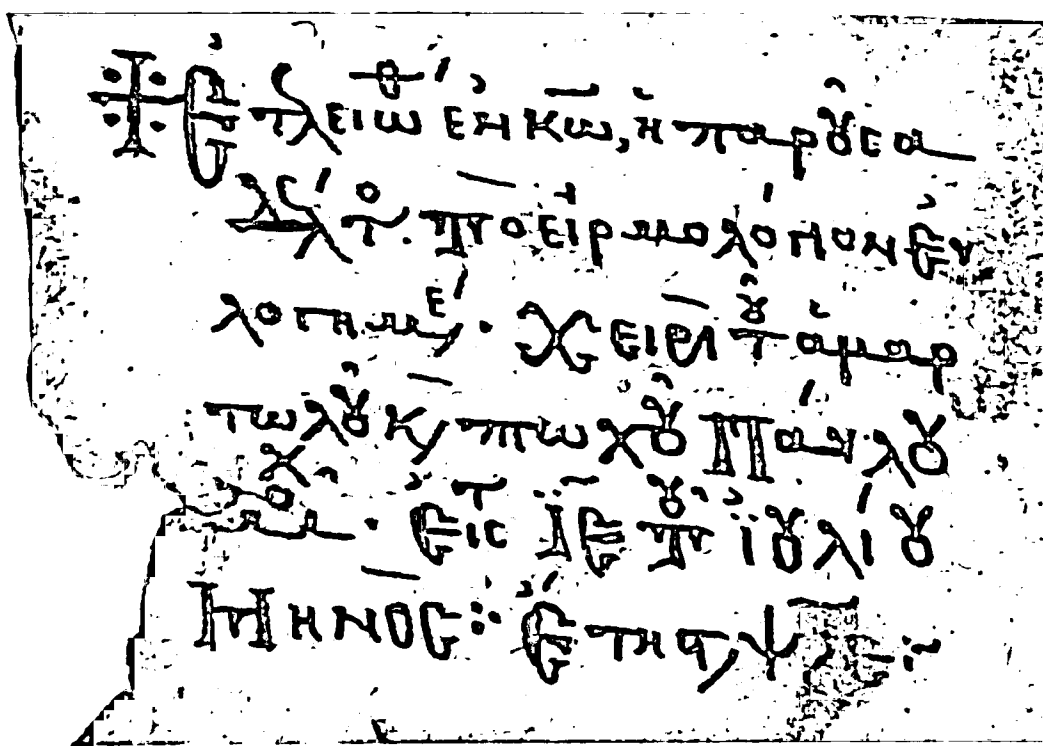 Ἐτλειώθ ἐν κ̅ω̅, ἡ παροῦσα
δέλτο. τὸ εἱρμολόγηον Εὐ
λογημέν. Χειρὶ τοῦ ἁμαρ
τωλοῦ κ, πτωχοῦ Παύλου
μοχ. Εἰς τ ΙΕ τοῦ ἰουλίου
Μηνός: Ἔτη ϛ,ψ